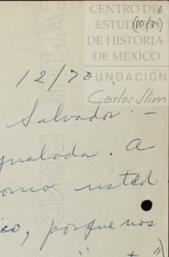 CENTRO DE
ESTUDIOS
DE HISTORIA
DE MEXICO
FUNDACIÓN
Carlos Slim
12/70.
Salvador:-
gualada. A
omo usted
co, porque nos